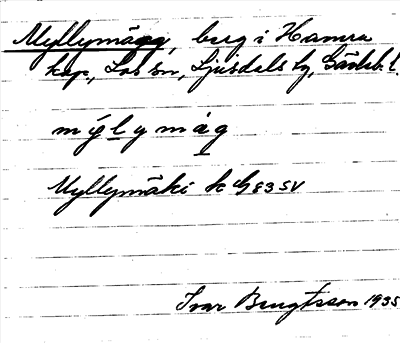 Myllymägg, berg i Hamra
kap., Los sn, Ljusdals tg, Gävleb. l.
mýlymág
Myllymäki k Gg 83 SV
Ivar Bengtsson 1935